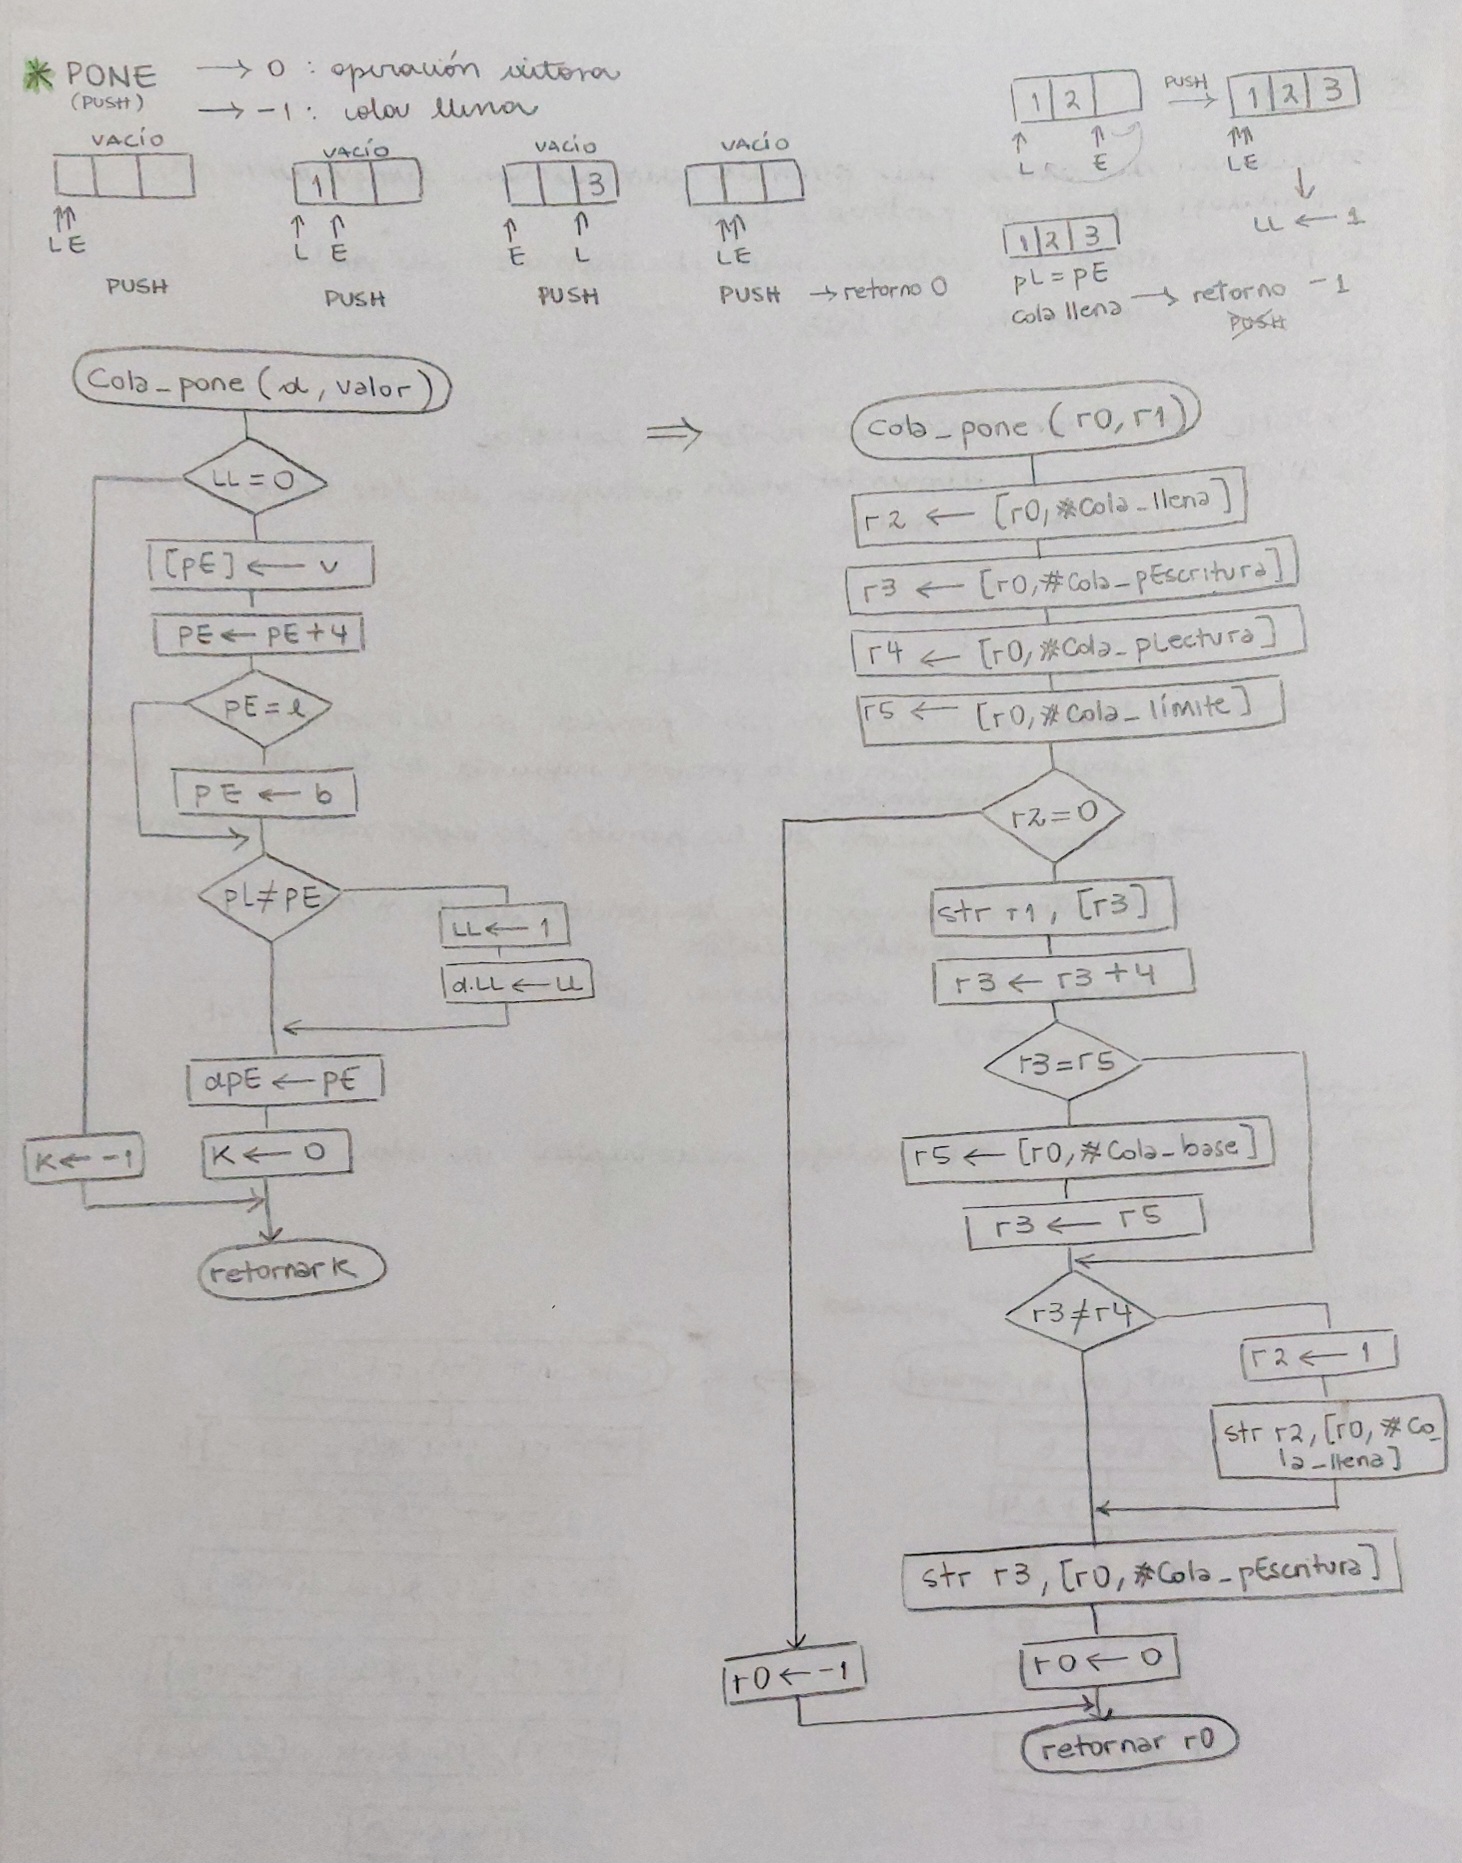 * PONE → 0 : operación exitosa
(PUSH) → -1 : cola llena
VACÍO
L E
PUSH
VACÍO
1
L E
PUSH
VACÍO
3
E L
PUSH
VACÍO
L E
PUSH → retorno 0
1 2
L E
PUSH →
1 2 3
L E
LL ← 1
1 2 3
pL = pE
cola llena → retorno -1
PUSH
Cola_pone (d, valor)
LL = 0
[pE] ← v
pE ← pE + 4
pE = l
pE ← b
pL ≠ pE
LL ← 1
d.LL ← LL
dpE ← pE
K ← -1
K ← 0
retornar K
⇒
Cola_pone (r0, r1)
r2 ← [r0, #Cola_llena]
r3 ← [r0, #Cola_pEscritura]
r4 ← [r0, #Cola_pLectura]
r5 ← [r0, #Cola_límite]
r2 = 0
str r1, [r3]
r3 ← r3 + 4
r3 = r5
r5 ← [r0, #Cola_base]
r3 ← r5
r3 ≠ r4
r2 ← 1
str r2, [r0, #Co_
la_llena]
str r3, [r0, #Cola_pEscritura]
r0 ← -1
r0 ← 0
retornar r0